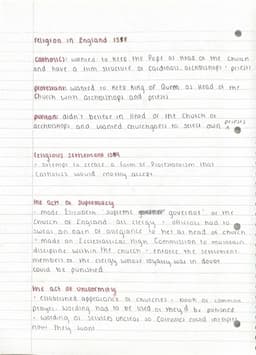 religion in England 1558
Catholics: wanted to keep the Pope as head of the church
and have a firm structure of cardinals, archbishops + priests
protestant: wanted to keep King or Queen as head of the
church with archbishops and priests
puritan: didn't believe in head of the church or
priests
archbishops and wanted churchgoers to select own
religious settlement 1559
- attempt to create a form of Protestantism that
Catholics would mostly accept
the act of supremacy
- made Elizabeth supreme governor of the
church. All clergy + officials had to
swear an oath of allegiance to her as head of church
- made an Ecclesiastical High Commission to maintain
discipline within the church + enforce the settlement.
members of the clergy whose loyalty was in doubt
could be punished
the act of uniformity
- established appearance of churches + book of common
prayer. Wording had to be used or they'd be punished
- wording of services unclear so Catholics could interpret
how they want